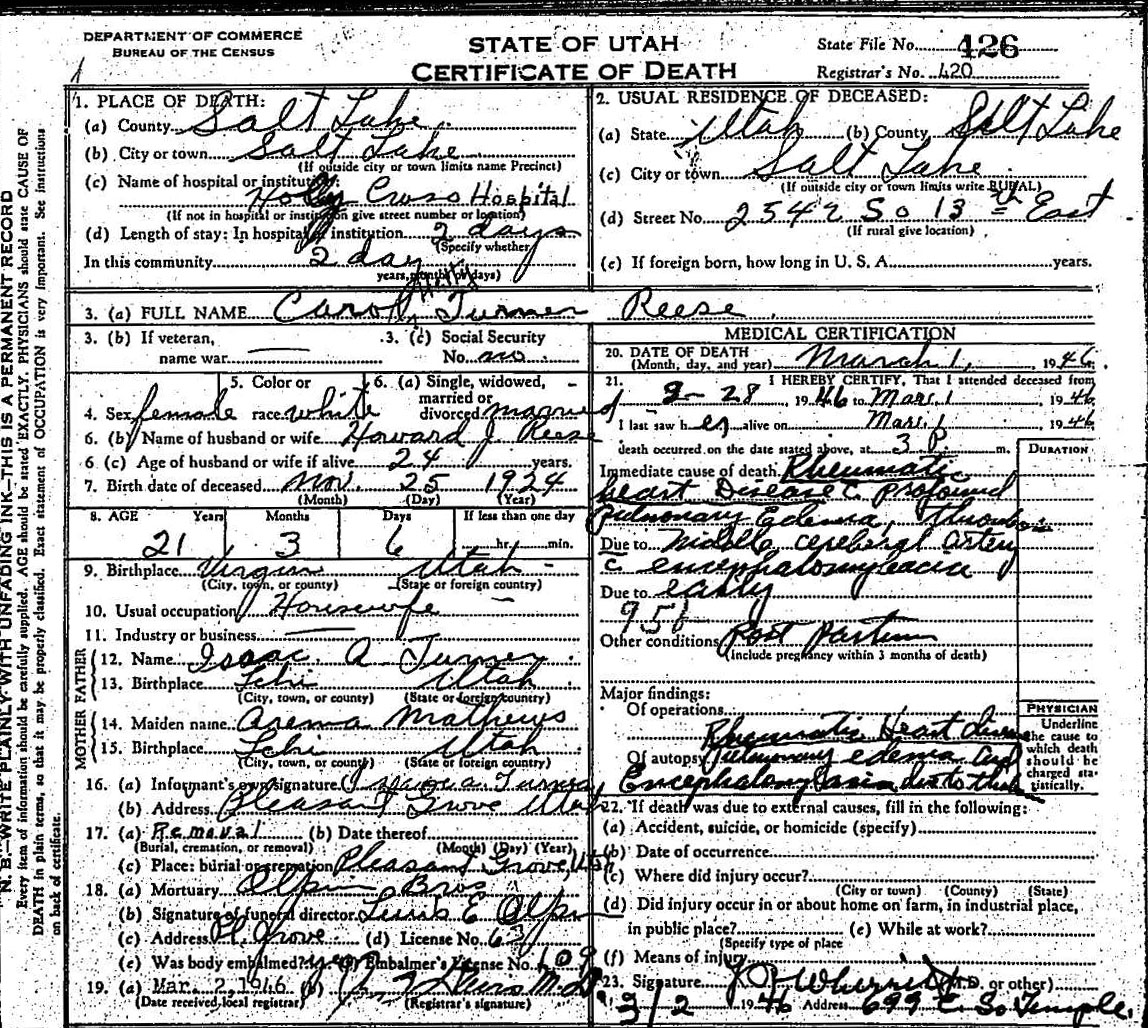 DEPARTMENT OF COMMERCE
BUREAU OF THE CENSUS
STATE OF UTAH
CERTIFICATE OF DEATH
State File No. 426
Registrar's No. 420
N. B.—WRITE PLAINLY WITH UNFADING INK—THIS IS A PERMANENT RECORD
Every item of information should be carefully supplied. AGE should be stated EXACTLY. PHYSICIANS should state CAUSE OF
DEATH in plain terms, so that it may be properly classified. Exact statement of OCCUPATION is very important. See instructions
on back of certificate.
1. PLACE OF DEATH:
(a) County Salt Lake
(b) City or town Salt Lake
(If outside city or town limits name Precinct)
(c) Name of hospital or institution:
Holy Cross Hospital
(If not in hospital or institution give street number or location)
(d) Length of stay: In hospital or institution 2 days
(Specify whether
In this community 2 day
years, months or days)
2. USUAL RESIDENCE OF DECEASED:
(a) State Utah (b) County Salt Lake
(c) City or town Salt Lake
(If outside city or town limits write RURAL)
(d) Street No. 2542 So 13th East
(If rural give location)
(e) If foreign born, how long in U. S. A. years.
3. (a) FULL NAME Carol Turner Reese
3. (b) If veteran,
name war
3. (c) Social Security
No. no
4. Sex female
5. Color or
race white
6. (a) Single, widowed,
married or
divorced married
6. (b) Name of husband or wife Howard J. Reese
6 (c) Age of husband or wife if alive 24 years.
7. Birth date of deceased Nov. 25 1924
(Month) (Day) (Year)
8. AGE Years Months Days If less than one day
21 3 6 hr. min.
9. Birthplace Virgin Utah
(City, town, or county) (State or foreign country)
10. Usual occupation Housewife
11. Industry or business
FATHER
12. Name Isaac A Turner
13. Birthplace Lehi Utah
(City, town, or county) (State or foreign country)
MOTHER
14. Maiden name Arema Mathews
15. Birthplace Lehi Utah
(City, town, or county) (State or foreign country)
16. (a) Informant's own signature Turner
(b) Address Pleasant Grove Utah
17. (a) Removal (b) Date thereof
(Burial, cremation, or removal) (Month) (Day) (Year)
(c) Place: burial or cremation Pleasant Grove, Utah
18. (a) Mortuary Bros
(b) Signature of funeral director E
(c) Address Pl. Grove (d) License No. 63
(e) Was body embalmed? yes (f) Embalmer's License No. 109
19. (a) Mar. 2, 1946 (b) M.D.
(Date received local registrar) (Registrar's signature)
MEDICAL CERTIFICATION
20. DATE OF DEATH
(Month, day, and year) March 1, 1946
21. I HEREBY CERTIFY, That I attended deceased from
2-28 1946 to Mar. 1 1946
I last saw her alive on Mar. 1 1946
death occurred on the date stated above, at 3 P m.
DURATION
Immediate cause of death Rheumatic
heart Disease c profound
pulmonary Edema, thrombosis
Due to middle cerebral artery
c encephalomylacia
Due to early
95b
Other conditions Post Partum
(Include pregnancy within 3 months of death)
Major findings:
Of operations
Rheumatic Heart disease
Of autopsy Pulmonary edema and
Encephalomylasia due to
PHYSICIAN
Underline
the cause to
which death
should be
charged sta-
tistically.
22. If death was due to external causes, fill in the following:
(a) Accident, suicide, or homicide (specify)
(b) Date of occurrence
(c) Where did injury occur?
(City or town) (County) (State)
(d) Did injury occur in or about home on farm, in industrial place,
in public place? (e) While at work?
(Specify type of place
(f) Means of injury
23. Signature (M.D. or other)
3/2 1946 Address 699 E. So Temple.